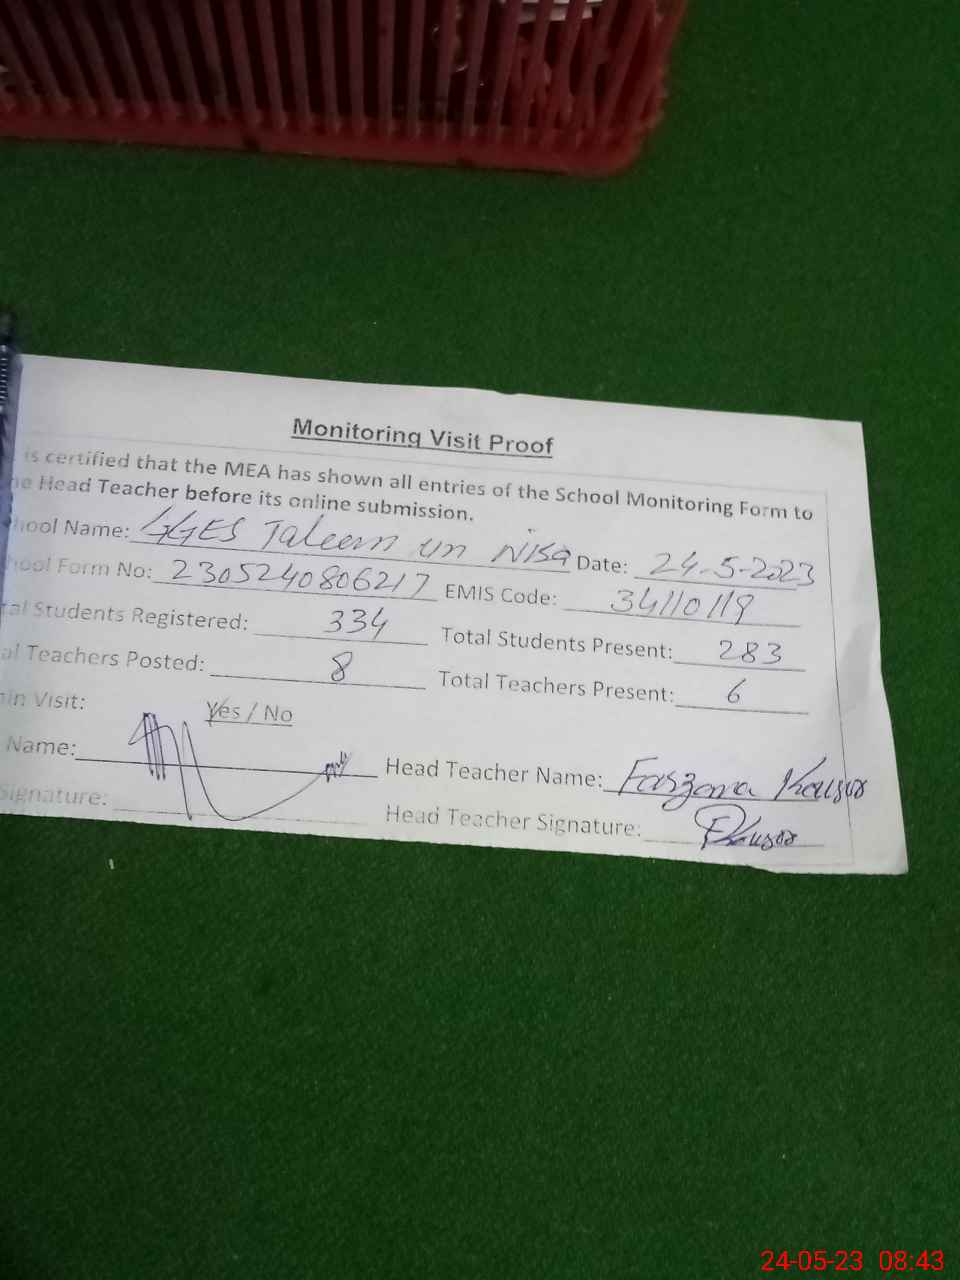 Monitoring Visit Proof
is certified that the MEA has shown all entries of the School Monitoring Form to
he Head Teacher before its online submission.
hool Name: GGES Taleem un Nisa Date: 24-5-2023
hool Form No: 2305240806217 EMIS Code: 34110119
tal Students Registered: 334 Total Students Present: 283
al Teachers Posted: 8 Total Teachers Present: 6
in Visit: Yes / No
Name: Head Teacher Name: Farzana Kausar
Signature: Head Teacher Signature: FKausar
24-05-23 08:43